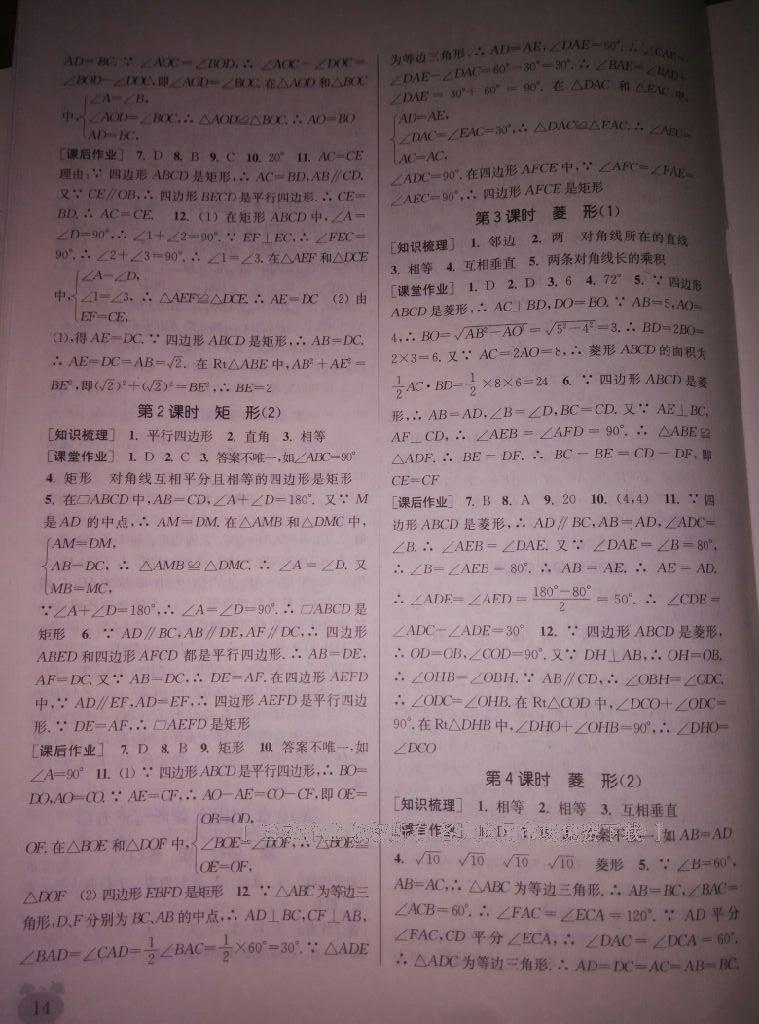 AD=BC. ∵ ∠AOC=∠BOD, ∴ ∠AOC-∠DOC=
∠BOD-∠DOC, 即∠AOD=∠BOC. 在△AOD 和△BOC
∠A=∠B,
中, ∠AOD=∠BOC, ∴ △AOD≌△BOC. ∴ AO=BO
AD=BC,
[课后作业] 7. D 8. B 9. C 10. 20° 11. AC=CE
理由: ∵ 四边形 ABCD 是矩形, ∴ AC=BD, AB∥CD.
又∵ CE∥OB, ∴ 四边形 BECD 是平行四边形. ∴ CE=
BD. ∴ AC=CE. 12. (1) 在矩形 ABCD 中, ∠A=
∠D=90°, ∴ ∠1+∠2=90°. ∵ EF⊥EC, ∴ ∠FEC=
90°. ∴ ∠2+∠3=90°. ∴ ∠1=∠3. 在△AEF 和△DCE
∠A=∠D,
中, ∠1=∠3, ∴ △AEF≌△DCE. ∴ AE=DC (2) 由
EF=CE,
(1), 得 AE=DC. ∵ 四边形 ABCD 是矩形, ∴ AB=DC.
∴ AE=DC=AB=√2. 在 Rt△ABE 中, AB²+AE²=
BE², 即(√2)²+(√2)²=BE², ∴ BE=2
第 2 课时 矩 形(2)
[知识梳理] 1. 平行四边形 2. 直角 3. 相等
[课堂作业] 1. D 2. C 3. 答案不唯一, 如∠ABC=90°
4. 矩形 对角线互相平分且相等的四边形是矩形
5. 在□ABCD 中, AB=CD, ∠A+∠D=180°. 又∵ M
是 AD 的中点, ∴ AM=DM. 在△AMB 和△DMC 中,
AM=DM,
AB=DC, ∴ △AMB≌△DMC. ∴ ∠A=∠D. 又
MB=MC,
∵∠A+∠D=180°, ∴ ∠A=∠D=90°. ∴ □ABCD 是
矩形 6. ∵ AD∥BC, AB∥DE, AF∥DC, ∴ 四边形
ABED 和四边形 AFCD 都是平行四边形. ∴ AB=DE,
AF=DC. 又∵ AB=DC, ∴ DE=AF. 在四边形 AEFD
中, ∵ AD∥EF, AD=EF, ∴ 四边形 AEFD 是平行四边
形. ∵ DE=AF, ∴ □AEFD 是矩形
[课后作业] 7. D 8. B 9. 矩形 10. 答案不唯一, 如
∠A=90° 11. (1) ∵ 四边形 ABCD 是平行四边形, ∴ BO=
DO, AO=CO. ∵ AE=CF, ∴ AO-AE=CO-CF, 即 OE=
OB=OD,
OF. 在△BOE 和△DOF 中, ∠BOE=∠DOF, ∴ △BOE≌
OE=OF,
△DOF (2) 四边形 EBFD 是矩形 12. ∵ △ABC 为等边三
角形, D、F 分别为 BC、AB 的中点, ∴ AD⊥BC, CF⊥AB,
∠BAD=∠CAD=1/2∠BAC=1/2×60°=30°. ∵ △ADE
14
为等边三角形, ∴ AD=AE, ∠DAE=60°. ∴ ∠CAE=
∠DAE-∠DAC=60°-30°=30°. ∴ ∠BAE=∠BAD+
∠DAE=30°+60°=90°. 在 △DAC 和 △EAC 中,
AD=AE,
∠DAC=∠EAC=30°, ∴ △DAC≌△EAC. ∴ ∠AEC=
AC=AC,
∠ADC=90°. 在四边形 AFCE 中, ∵ ∠AFC=∠FAE=
∠AEC=90°, ∴ 四边形 AFCE 是矩形
第 3 课时 菱 形(1)
[知识梳理] 1. 邻边 2. 两 对角线所在的直线
3. 相等 4. 互相垂直 5. 两条对角线长的乘积
[课堂作业] 1. D 2. D 3. 6 4. 72° 5. ∵ 四边形
ABCD 是菱形, ∴ AC⊥BD, DO=BO. ∵ AB=5, AO=
4, ∴ BO=√(AB²-AO²)=√(5²-4²)=3. ∴ BD=2BO=
2×3=6. 又∵ AC=2AO=8, ∴ 菱形 ABCD 的面积为
1/2 AC·BD=1/2×8×6=24 6. ∵ 四边形 ABCD 是菱
形, ∴ AB=AD, ∠B=∠D, BC=CD. 又∵ AE⊥BC,
AF⊥CD, ∴ ∠AEB=∠AFD=90°. ∴ △ABE≌
△ADF. ∴ BE=DF. ∴ BC-BE=CD-DF, 即
CE=CF
[课后作业] 7. B 8. A 9. 20 10. (4,4) 11. ∵ 四
边形 ABCD 是菱形, ∴ AD∥BC, AB=AD, ∠ADC=
∠B. ∴ ∠AEB=∠DAE. 又∵ ∠DAE=∠B=80°,
∴ ∠B=∠AEB=80°. ∴ AB=AE. ∴ AE=AD.
∴ ∠ADE=∠AED=(180°-80°)/2=50°. ∴ ∠CDE=
∠ADC-∠ADE=30° 12. ∵ 四边形 ABCD 是菱形,
∴ OD=OB, ∠COD=90°. 又∵ DH⊥AB, ∴ OH=OB.
∴ ∠OHB=∠OBH. ∵ AB∥CD, ∴ ∠OBH=∠ODC.
∴ ∠ODC=∠OHB. 在 Rt△COD 中, ∠DCO+∠ODC=
90°. 在 Rt△DHB 中, ∠DHO+∠OHB=90°, ∴ ∠DHO=
∠DCO
第 4 课时 菱 形(2)
[知识梳理] 1. 相等 2. 相等 3. 互相垂直
如 AB=AD
4. √10 √10 √10 √10 菱形 5. ∵ ∠B=60°,
AB=AC, ∴ △ABC 为等边三角形. ∴ AB=BC, ∠BAC=
∠ACB=60°. ∴ ∠FAC=∠ECA=120°. ∵ AD 平分
∠FAC, CD 平分∠ECA, ∴ ∠DAC=∠DCA=60°.
∴ △ADC 为等边三角形. ∴ AD=DC=AC=AB=BC.